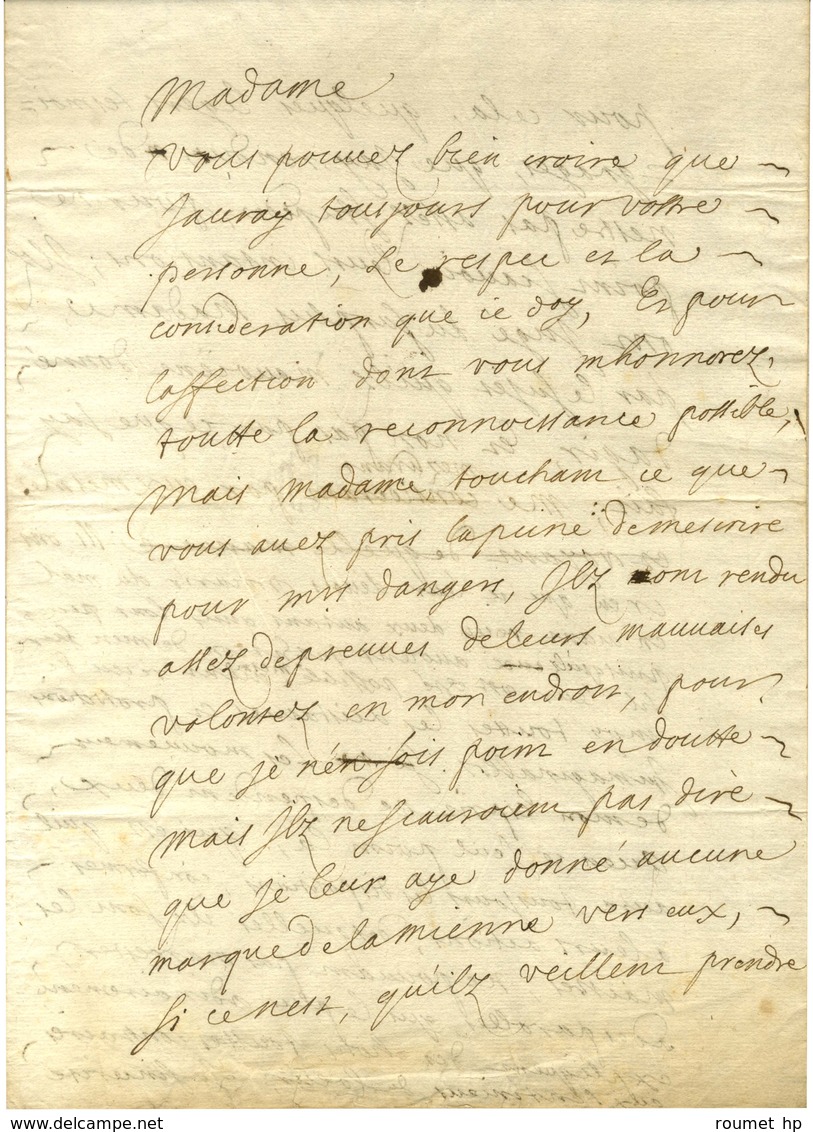 Madame
vous pouuez bien croire que
Jauray tousjours pour vostre
personne, Le respec et la
consideration que ie doy, Et pour
Laffection dont vous mhonnorez,
toutte la reconnoissance possible,
mais madame, toucham ce que
vous auez pris lapeine demescrire
pour mrs dangers, Ilz mom rendu
assez depreuues deleurs mauuaises
volontez en mon endroit, pour
que je nén sois poim en doutte
mais Ilz nescauroiem pas dire
que je leur aye donné aucune
marque delamienne vers eux,
si cenest, quilz veillem prendre
roumet hp